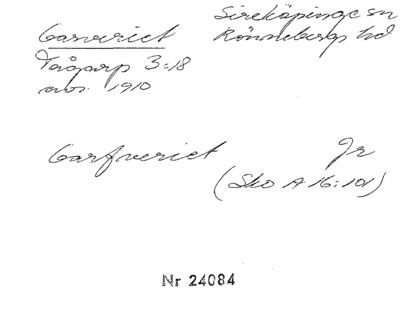 Garveriet
Sireköpinge sn
Rönnebergs hd
Tågarp 3:18
avs. 1910
Garfveriet Jr
(Sko A 16:101)
Nr 24084